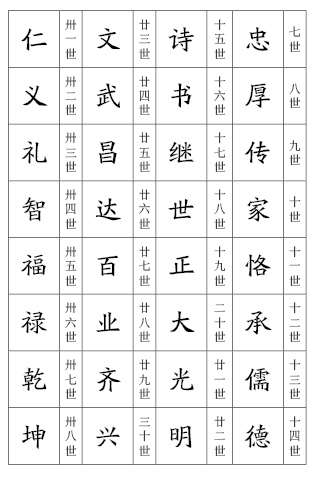 七世 忠
八世 厚
九世 传
十世 家
十一世 恪
十二世 承
十三世 儒
十四世 德
十五世 诗
十六世 书
十七世 继
十八世 世
十九世 正
二十世 大
廿一世 光
廿二世 明
廿三世 文
廿四世 武
廿五世 昌
廿六世 达
廿七世 百
廿八世 业
廿九世 齐
三十世 兴
卅一世 仁
卅二世 义
卅三世 礼
卅四世 智
卅五世 福
卅六世 禄
卅七世 乾
卅八世 坤